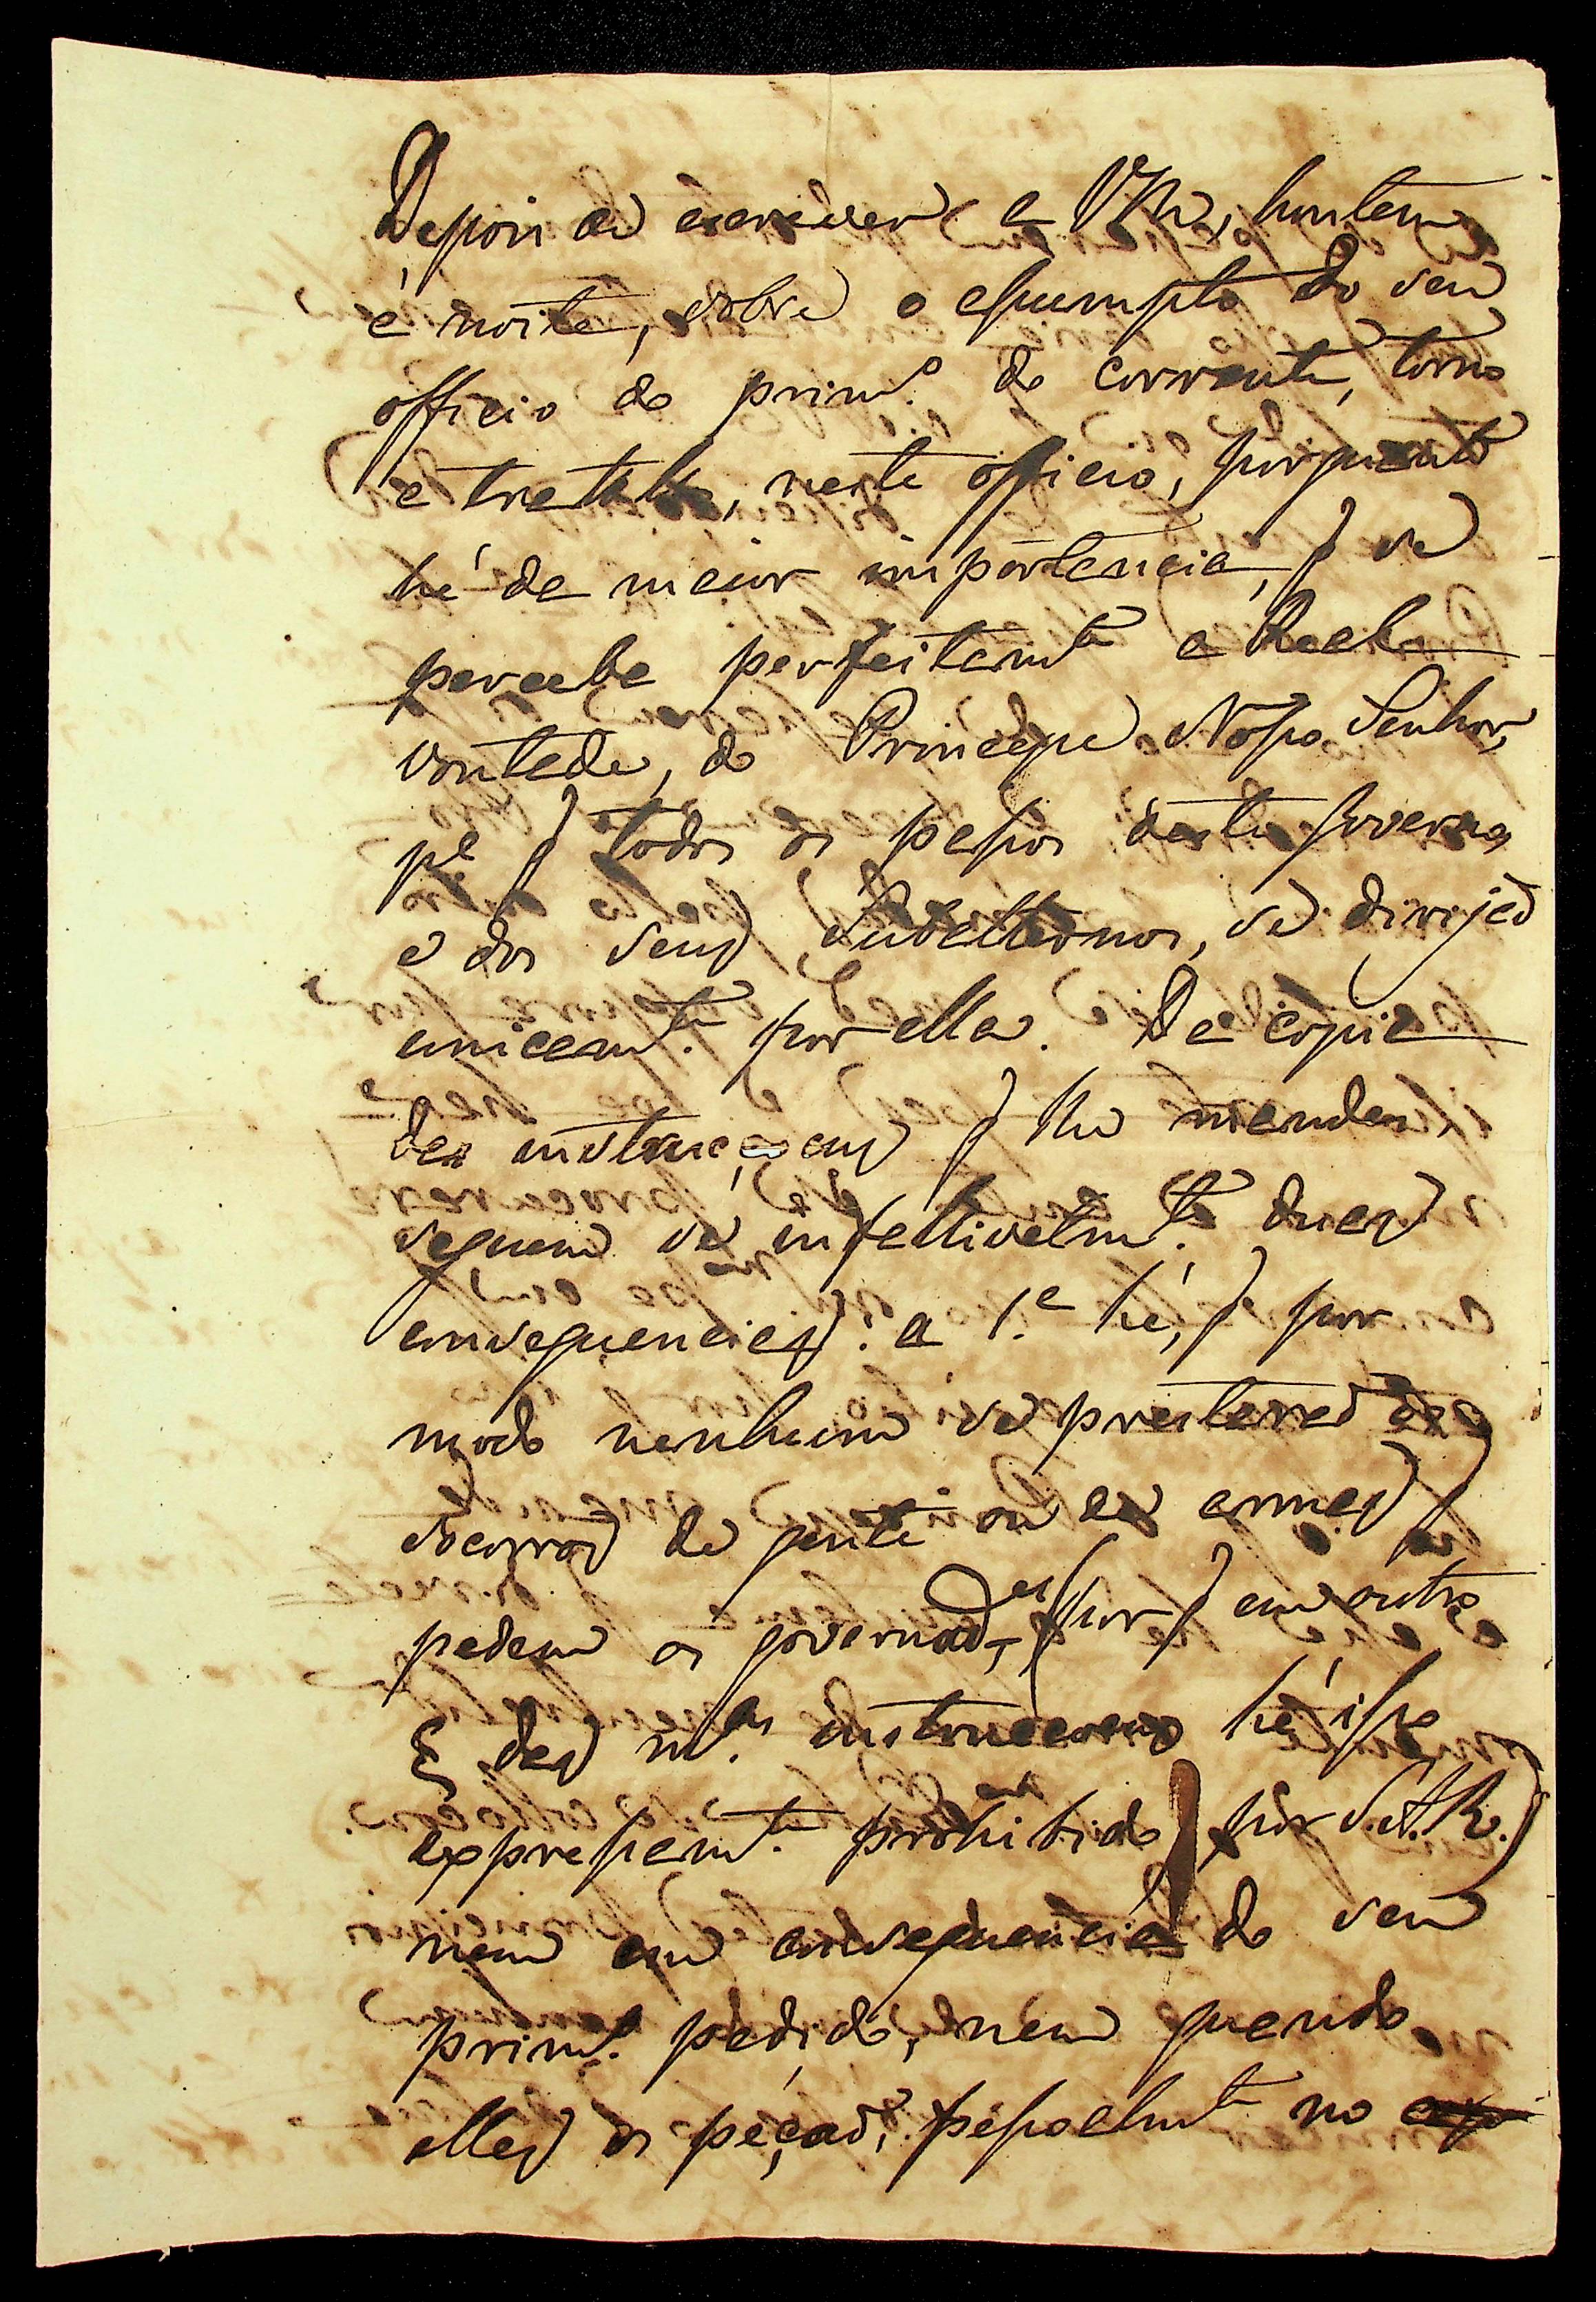 Depois de escrever a VM, hontem
á noite, sobre o assumpto do seu
officio do prim.º do corrente, torno
a tratalo, neste officio, porquanto
hé da maior importancia, q se
perceba perfeitamte a Real
vontade, do Principe Nosso Senhor,
pª q todos os passos deste Governo,
e dos seus Subalternos, se dirijaõ
unicamte. por ella. Da copia
das instrucçoens q lhe mandei,
seguem se infallivelm.te duas
consequencias: a 1.ª hé, q por
modo nenhum se prestaraõ os
socorros de gente ou as armas q
pedem os governad.es (por q em outro
§ das m.as instrucçoens hé isso
expressamte. prohibido por S.A.R.)
nem em consequencia do seu
prim.º pedido, nem quando
elles os peçaõ, pessoalmte no